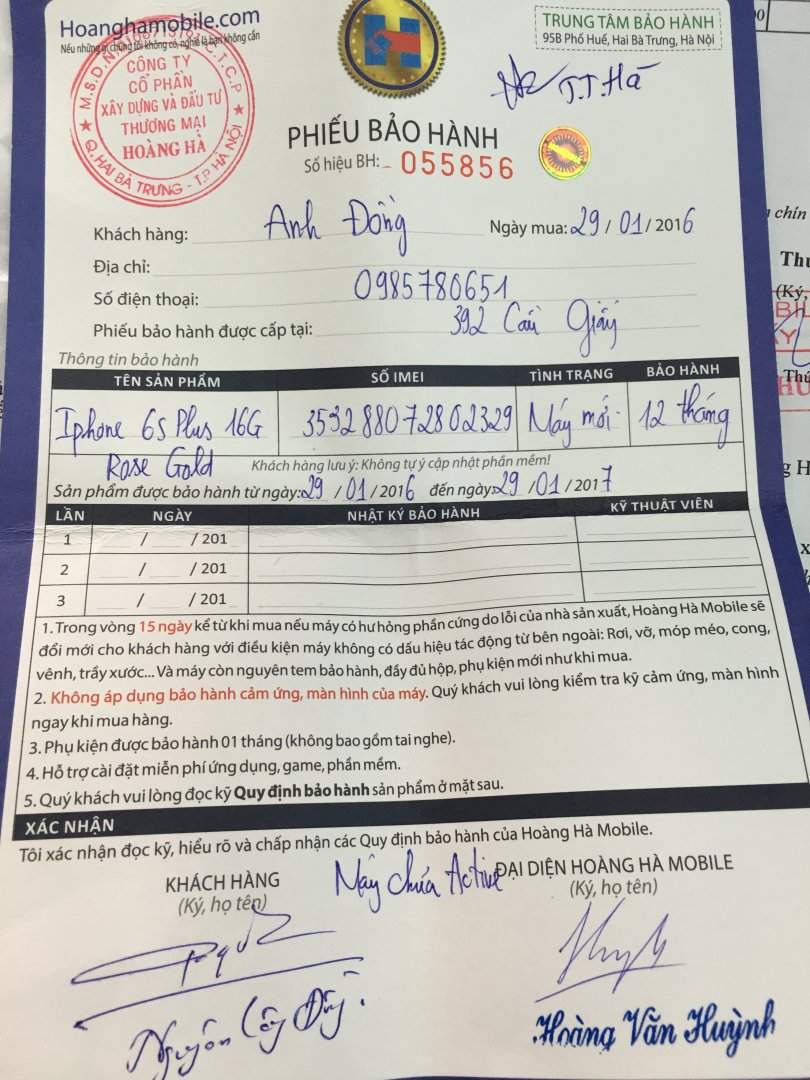 Hoanghamobile.com
Nếu những gì chúng tôi không có, nghĩa là bạn không cần
TRUNG TÂM BẢO HÀNH
95B Phố Huế, Hai Bà Trưng, Hà Nội
T.T.Hà
M.S.D.N
C.T.C.P
CÔNG TY
CỔ PHẦN
XÂY DỰNG VÀ ĐẦU TƯ
THƯƠNG MẠI
HOÀNG HÀ
Q.HAI BÀ TRƯNG - T.P HÀ NỘI
PHIẾU BẢO HÀNH
Số hiệu BH: 055856
Khách hàng: Anh Đồng Ngày mua: 29/01/2016
Địa chỉ:
Số điện thoại: 0985780651
Phiếu bảo hành được cấp tại: 392 Cầu Giấy
Thông tin bảo hành
TÊN SẢN PHẨM SỐ IMEI TÌNH TRẠNG BẢO HÀNH
Iphone 6s Plus 16G 353288072802329 Máy mới 12 tháng
Rose Gold Khách hàng lưu ý: Không tự ý cập nhật phần mềm!
Sản phẩm được bảo hành từ ngày: 29/01/2016 đến ngày: 29/01/2017
LẦN NGÀY NHẬT KÝ BẢO HÀNH KỸ THUẬT VIÊN
1 / /201
2 / /201
3 / /201
1. Trong vòng 15 ngày kể từ khi mua nếu máy có hư hỏng phần cứng do lỗi của nhà sản xuất, Hoàng Hà Mobile sẽ
đổi mới cho khách hàng với điều kiện máy không có dấu hiệu tác động từ bên ngoài: Rơi, vỡ, móp méo, cong,
vênh, trầy xước... Và máy còn nguyên tem bảo hành, đầy đủ hộp, phụ kiện mới như khi mua.
2. Không áp dụng bảo hành cảm ứng, màn hình của máy. Quý khách vui lòng kiểm tra kỹ cảm ứng, màn hình
ngay khi mua hàng.
3. Phụ kiện được bảo hành 01 tháng (không bao gồm tai nghe).
4. Hỗ trợ cài đặt miễn phí ứng dụng, game, phần mềm.
5. Quý khách vui lòng đọc kỹ Quy định bảo hành sản phẩm ở mặt sau.
XÁC NHẬN
Tôi xác nhận đọc kỹ, hiểu rõ và chấp nhận các Quy định bảo hành của Hoàng Hà Mobile.
KHÁCH HÀNG Máy chưa Active ĐẠI DIỆN HOÀNG HÀ MOBILE
(Ký, họ tên) (Ký, họ tên)
Nguyễn
Hoàng Văn Huỳnh